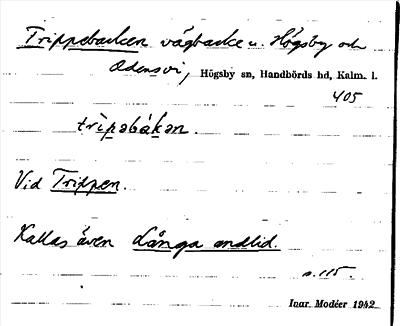 Trippebacken vägbacke u. Högsby och
Odensvi, Högsby sn, Handbörds hd, Kalm. l.
405
trìpəbákən.
Vid Trippen.
Kallas även Långa andlid.
s. 115.
Ingr. Modéer 1942